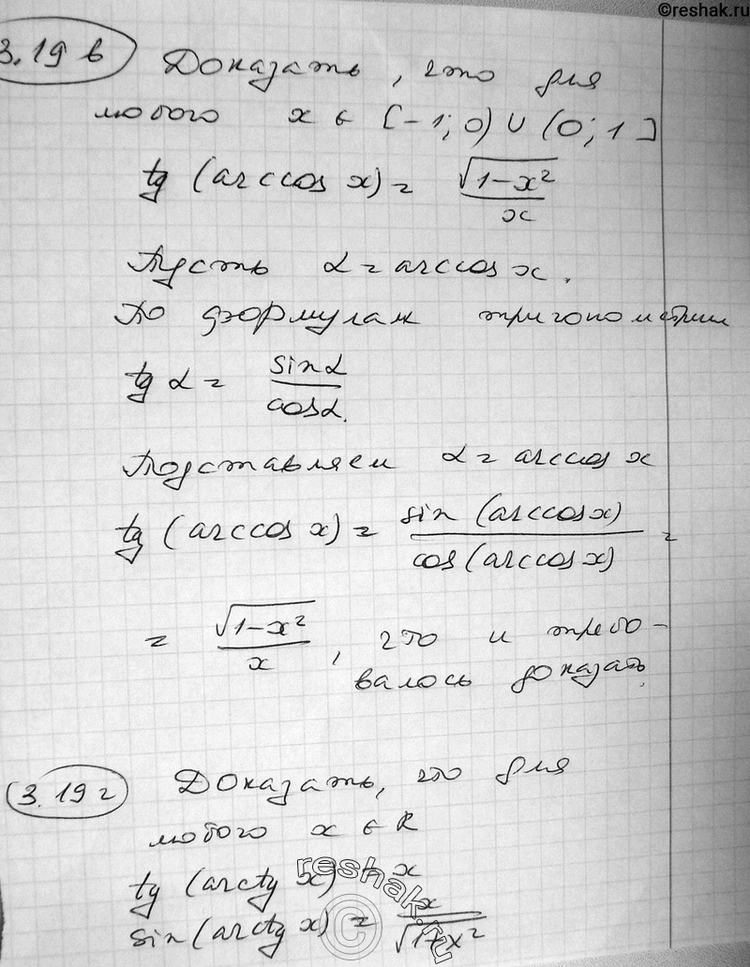 ©reshak.ru
3.19 в Доказать, что для
любого x ∈ [-1; 0) ∪ (0; 1]
tg (arccos x) = √(1-x²)/x
Пусть α = arccos x.
По формулам тригонометрии
tg α = sin α/cos α.
Подставляем α = arccos x
tg (arccos x) = sin (arccos x)/cos (arccos x) =
= √(1-x²)/x, что и требо-
валось доказать.
3.19 г Доказать, что для
любого x ∈ R
tg (arctg x) = x
sin (arctg x) = x/√(1+x²)
reshak.ru
©